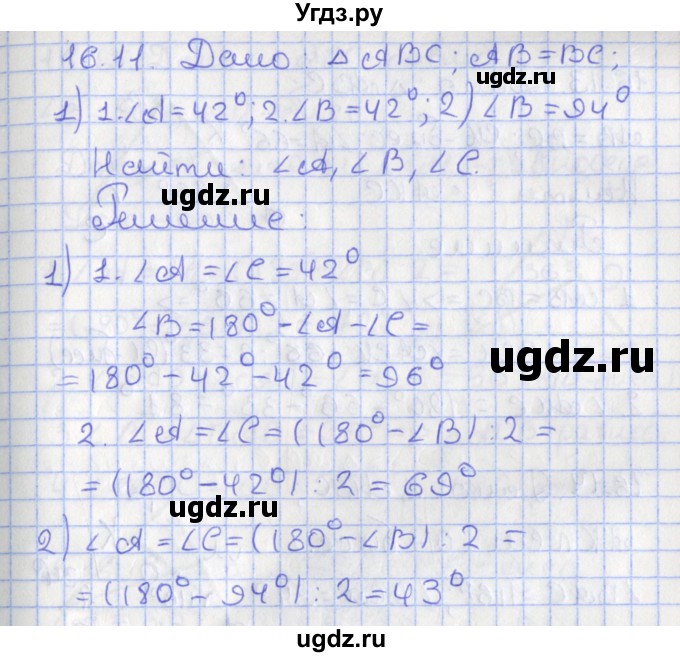 Угдз.ру
16.11. Дано: △ABC; AB=BC;
ugdz.ru
1) 1.∠A=42°; 2.∠B=42°; 2) ∠B=94°
Найти: ∠A, ∠B, ∠C.
ugdz.ru
Решение:
1) 1. ∠A=∠C=42°
∠B=180°-∠A-∠C=
ugdz.ru
=180°-42°-42°=96°
2. ∠A=∠C=(180°-∠B):2=
=(180°-42°):2=69°
ugdz.ru
2) ∠A=∠C=(180°-∠B):2=
ugdz.ru
=(180°-94°):2=43°
ugdz.ru